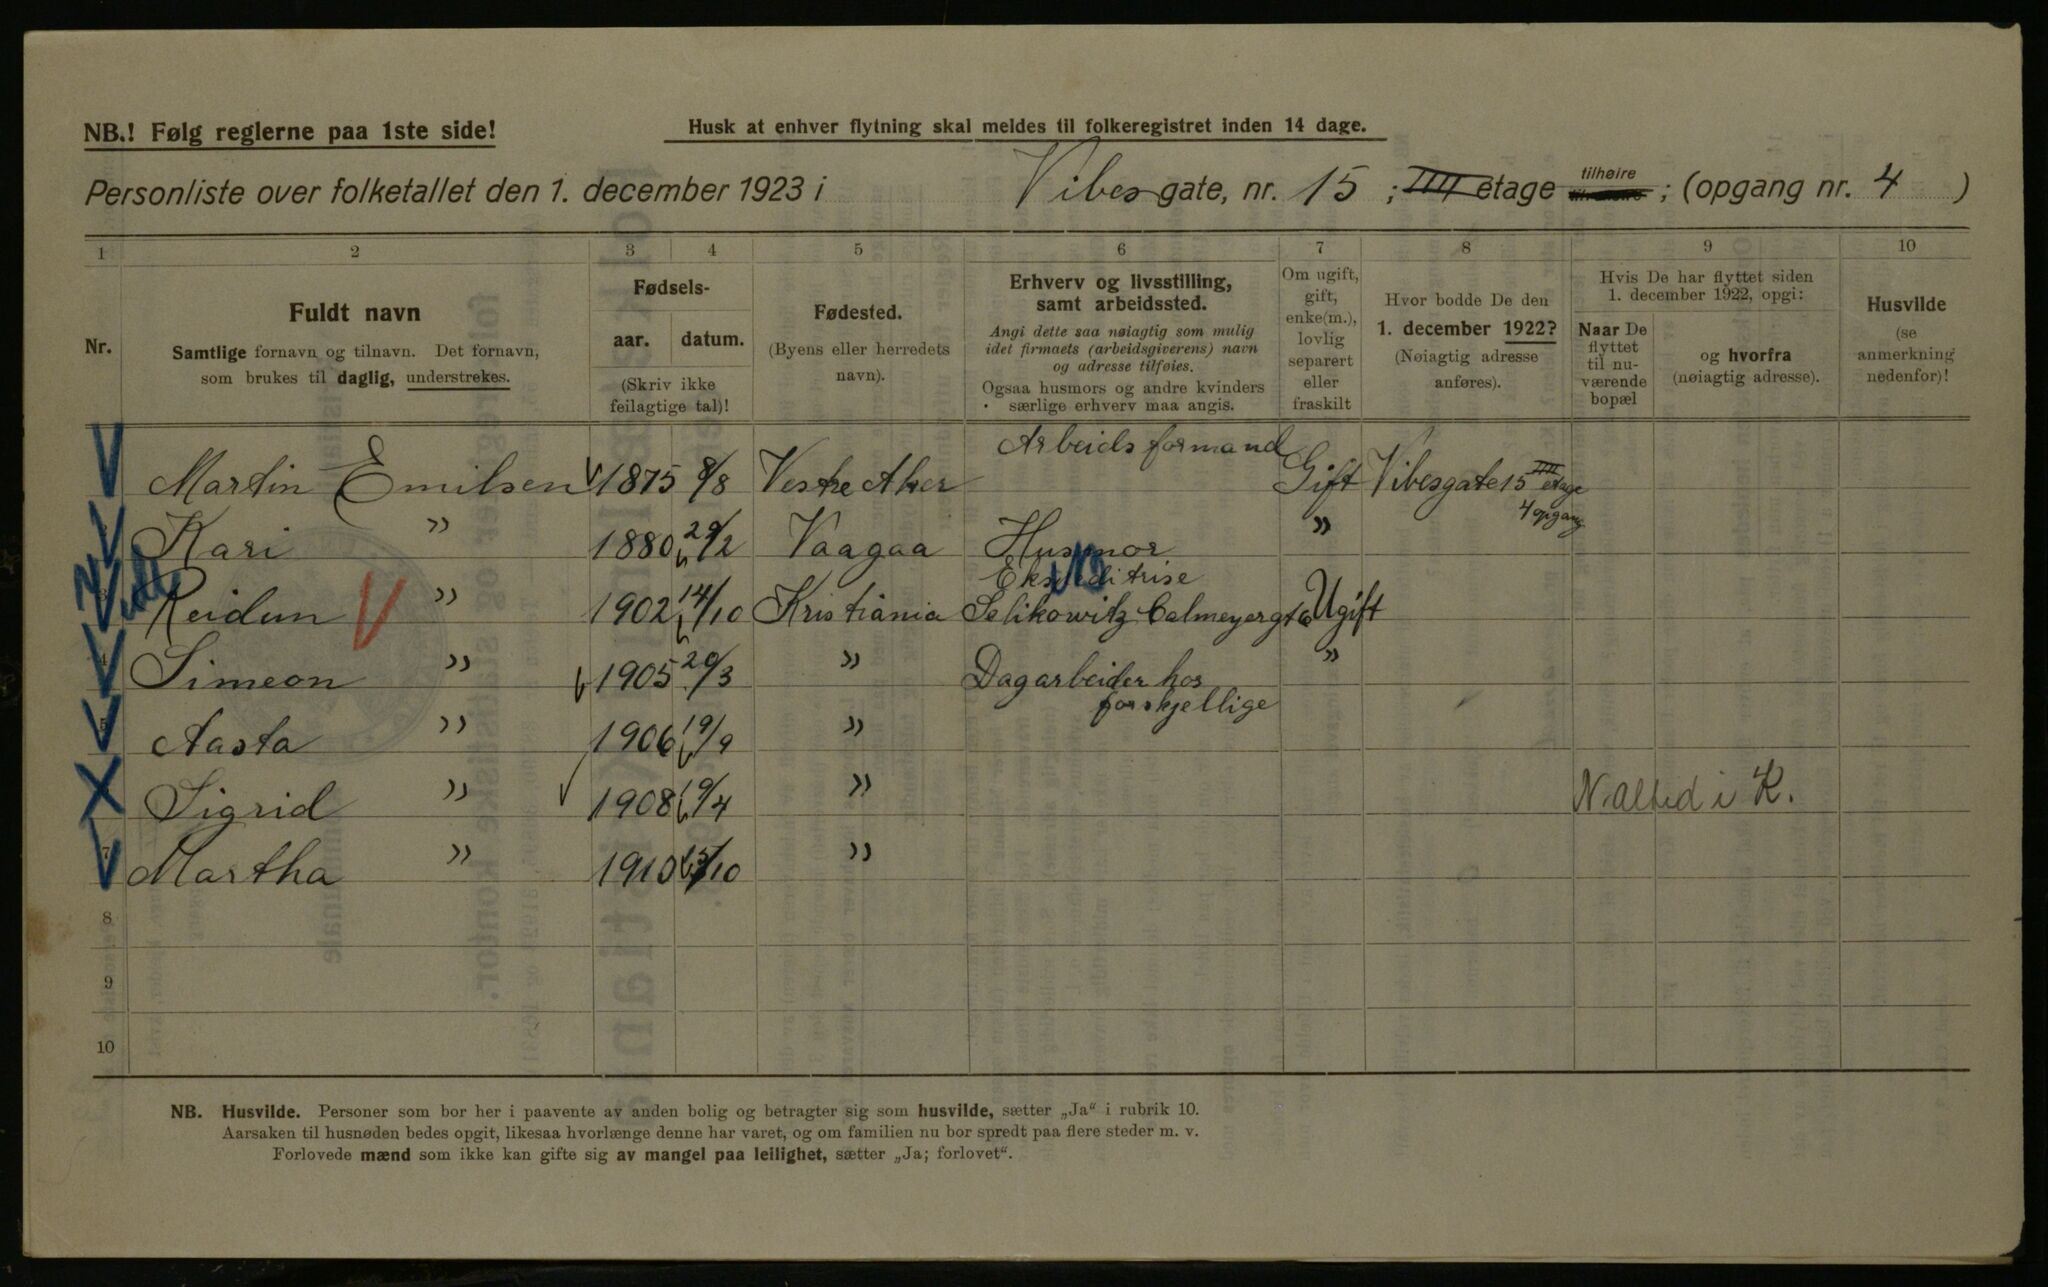 NB.! Følg reglerne paa 1ste side!
Husk at enhver flytning skal meldes til folkeregistret inden 14 dage.
Personliste over folketallet den 1. december 1923 i Vibes gate, nr. 15 ; IIII etage tilhøire ; (opgang nr. 4 )
1 2 3 4 5 6 7 8 9 10
Nr.
Fuldt navn
Samtlige fornavn og tilnavn. Det fornavn,
som brukes til daglig, understrekes.
Fødsels-
aar. datum.
(Skriv ikke
feilagtige tal)!
Fødested.
(Byens eller herredets
navn).
Erhverv og livsstilling,
samt arbeidssted.
Angi dette saa nøiagtig som mulig
idet firmaets (arbeidsgiverens) navn
og adresse tilføies.
Ogsaa husmors og andre kvinders
særlige erhverv maa angis.
Om ugift,
gift,
enke(m.),
lovlig
separert
eller
fraskilt
Hvor bodde De den
1. december 1922?
(Nøiagtig adresse
anføres).
Hvis De har flyttet siden
1. december 1922, opgi:
Naar De
flyttet
til nu-
værende
bopæl
og hvorfra
(nøiagtig adresse).
Husvilde
(se
anmerkning
nedenfor)!
Arbeidsformand
Martin Emilsen 1875 8/8 Vestre Aker Gift Vibesgate 15 IIII etage
4 opgang
Kari " 1880 29/2 Vaagaa Husmor "
Ekspeditrise
Reidun " 1902 14/10 Kristiania Selikowitz Calmeyergt 6 Ugift
4 Simeon " 1905 20/3 " Dagarbeider hos "
forskjellige
5 Aasta " 1906 19/9 "
Sigrid " 1908 19/4 " N. altid i K.
7 Martha " 1910 15/10 "
8
9
10
NB. Husvilde. Personer som bor her i paavente av anden bolig og betragter sig som husvilde, sætter „Ja“ i rubrik 10.
Aarsaken til husnøden bedes opgit, likesaa hvorlænge denne har varet, og om familien nu bor spredt paa flere steder m. v.
Forlovede mænd som ikke kan gifte sig av mangel paa leilighet, sætter „Ja; forlovet“.